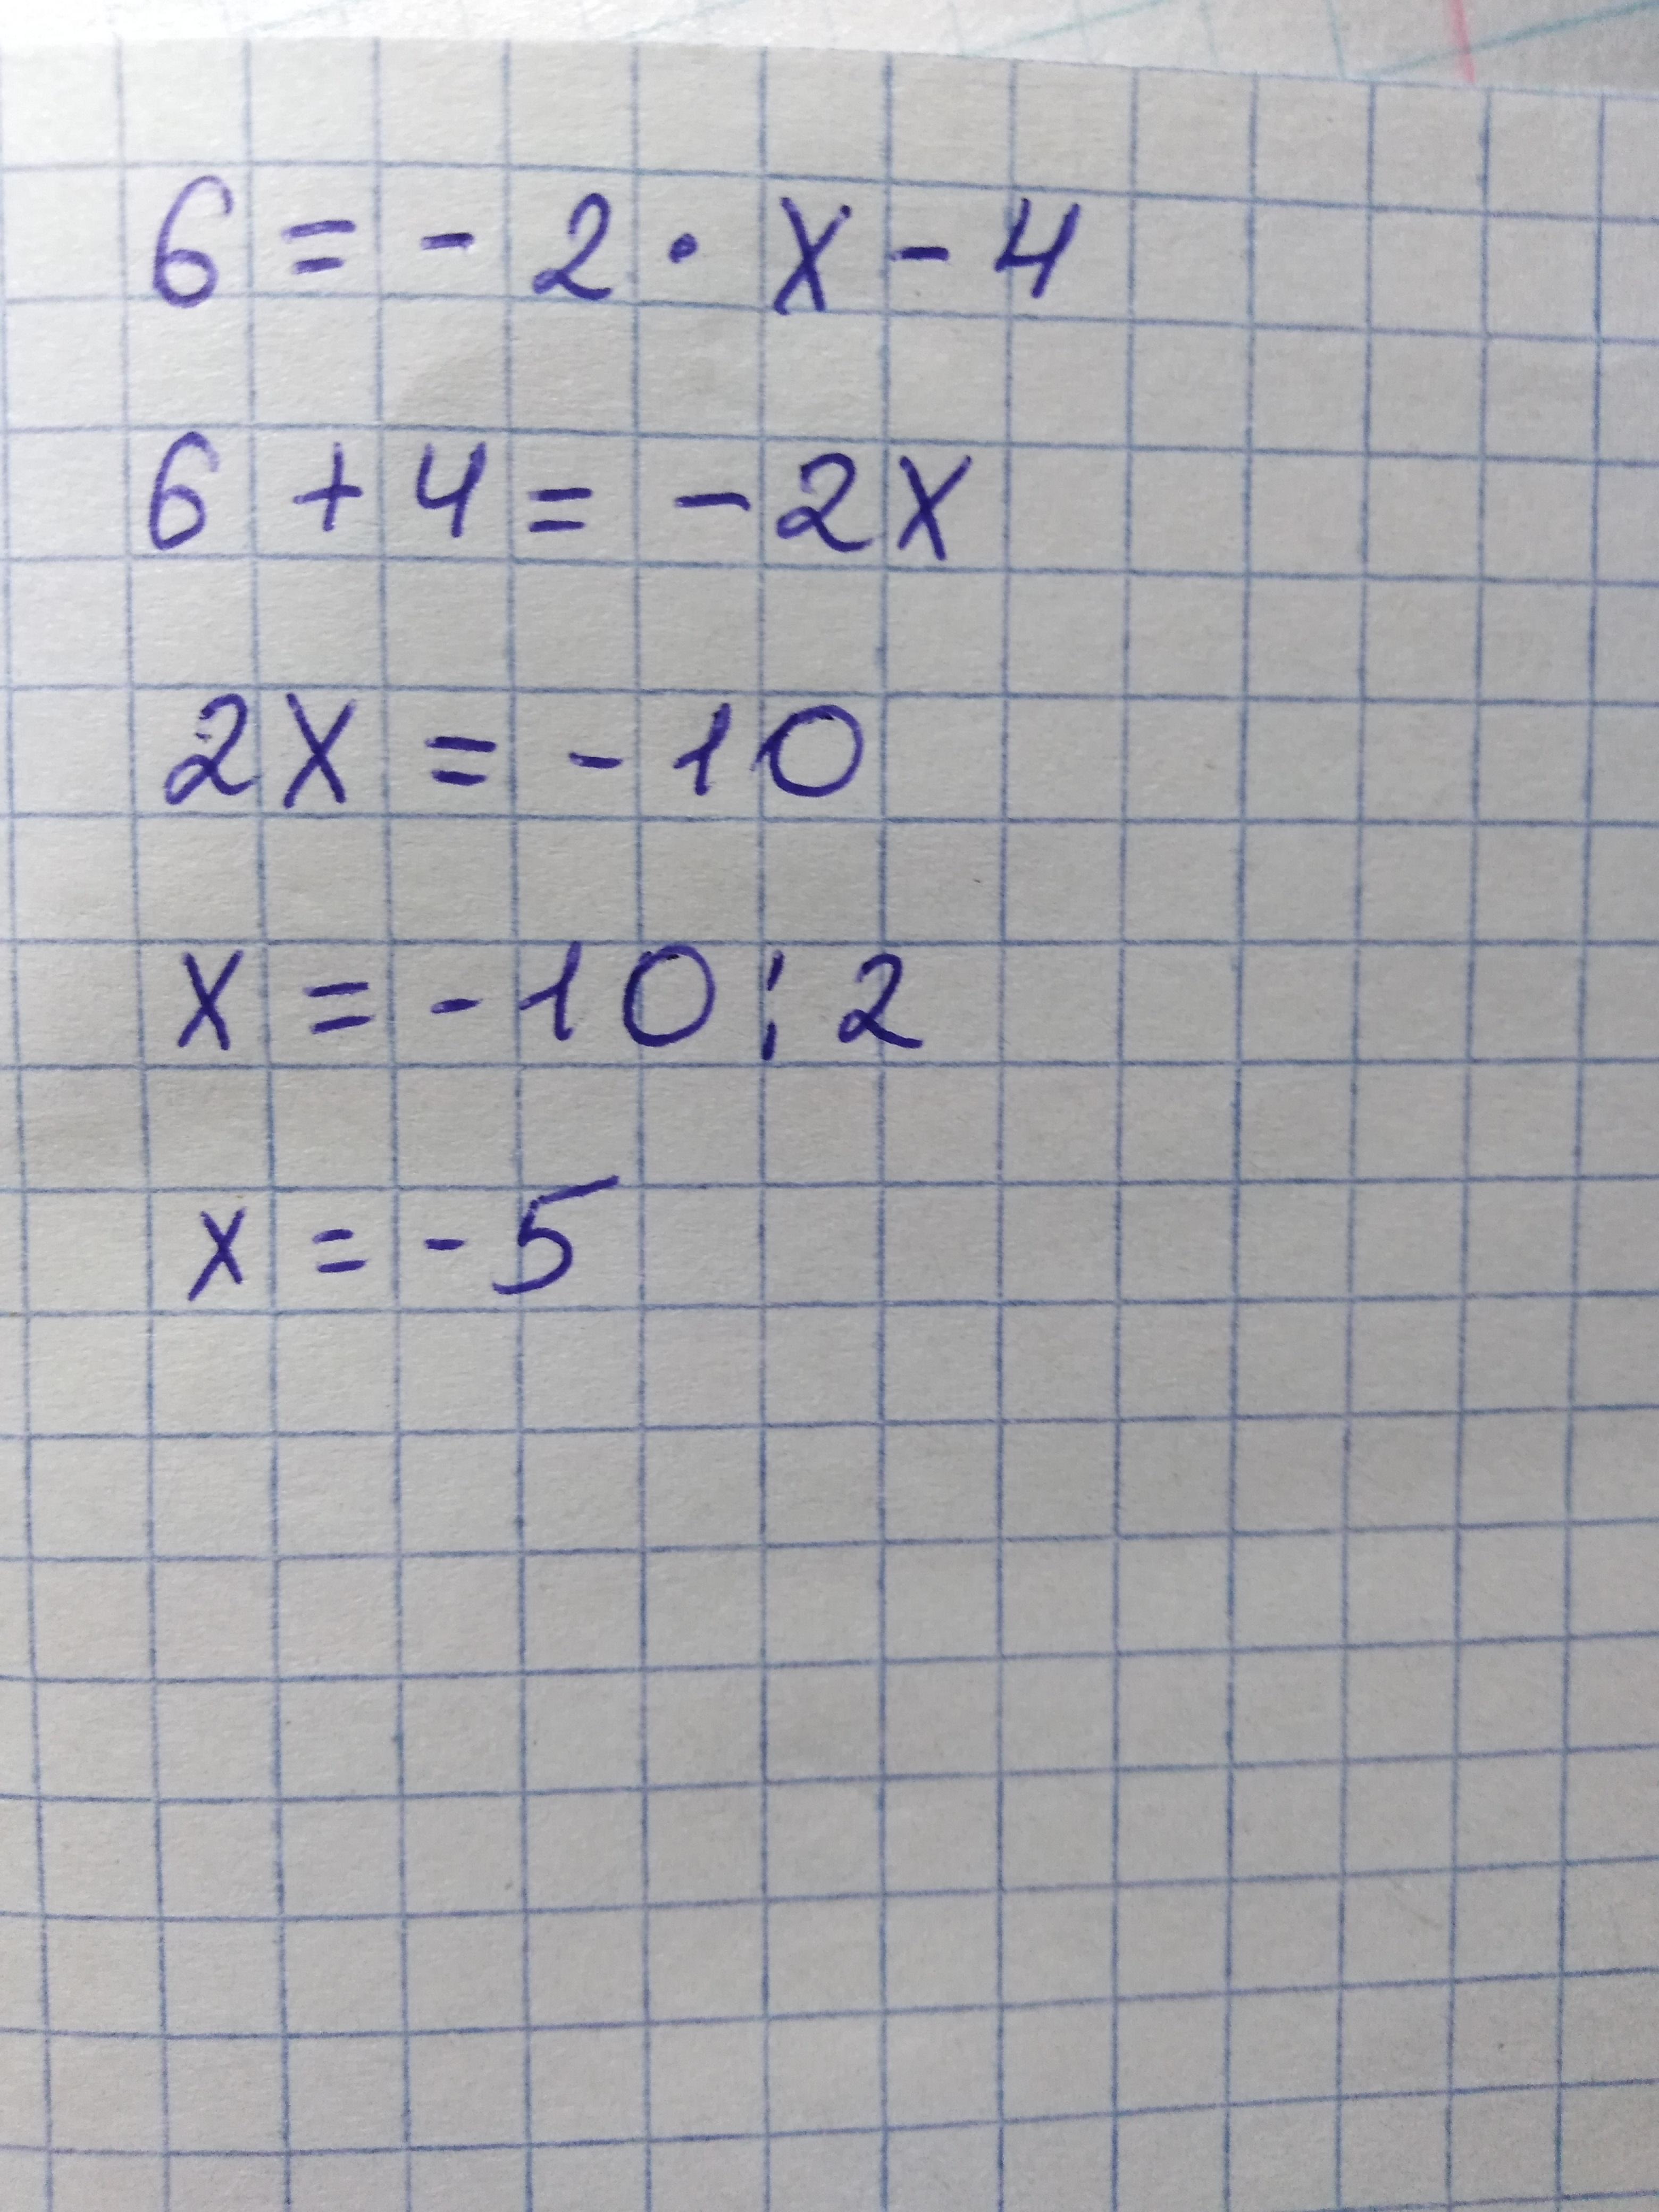 6 = - 2 · x - 4
6 + 4 = - 2x
2x = - 10
x = - 10 : 2
x = - 5